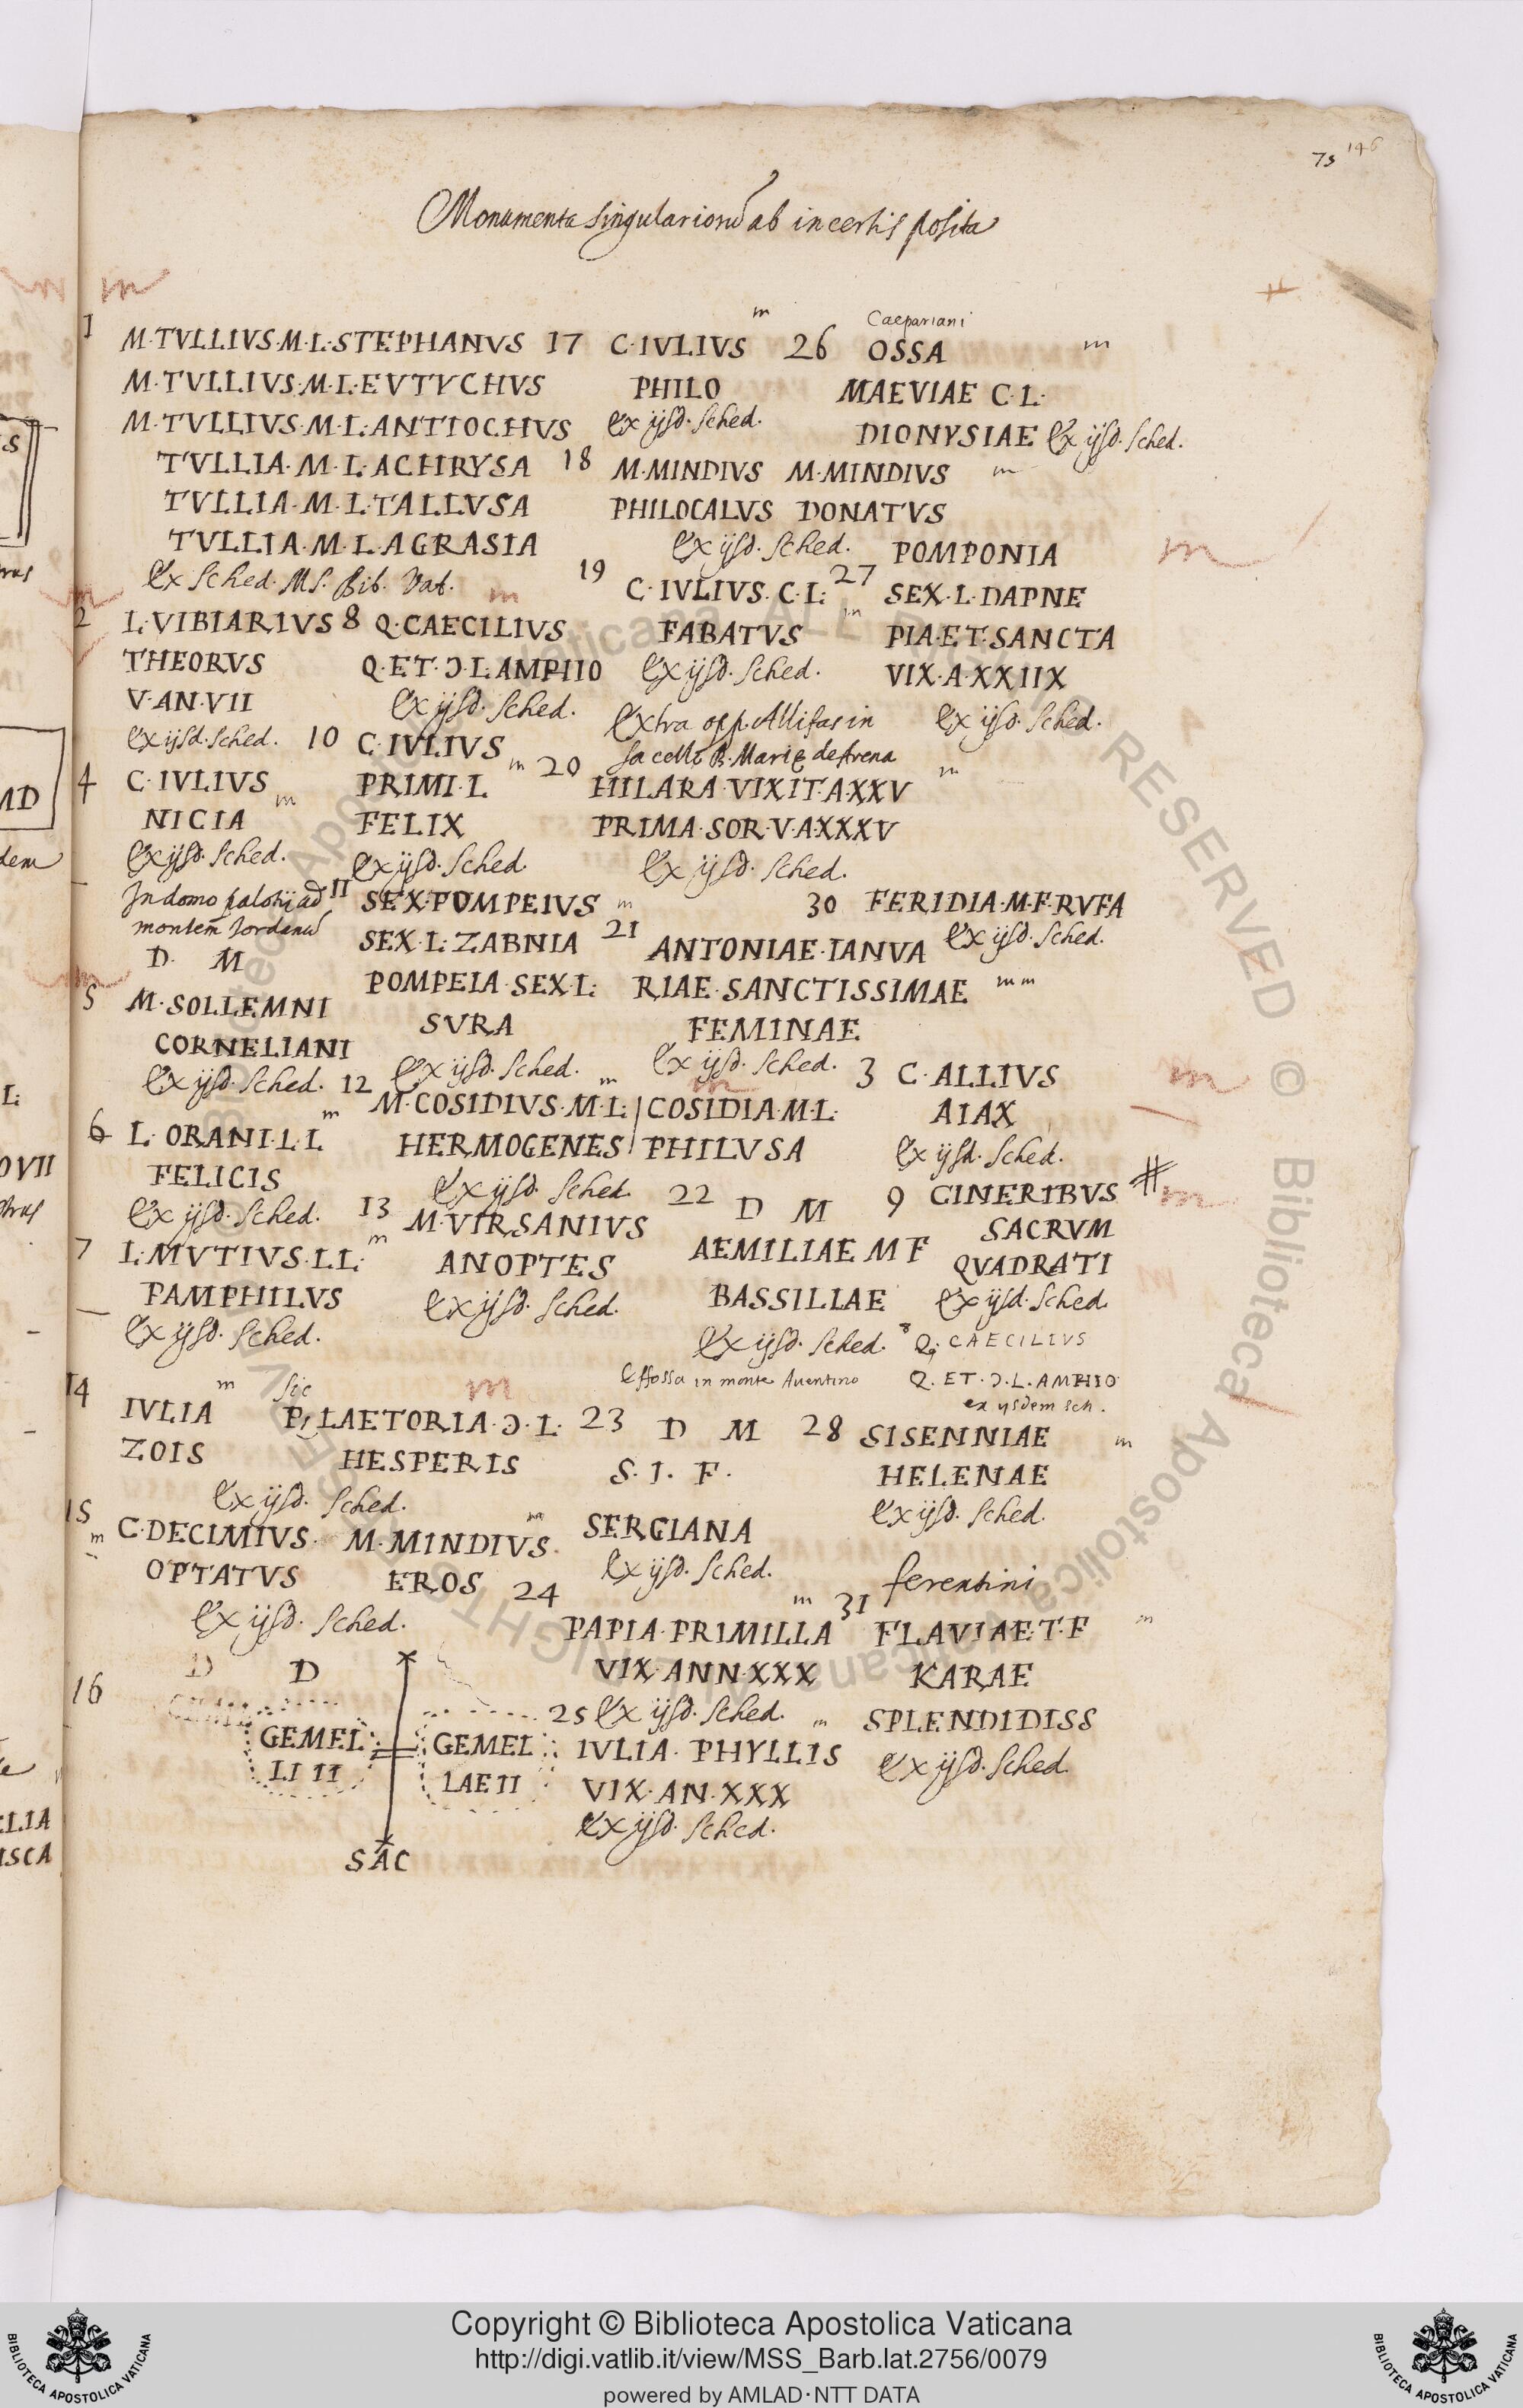 73 146
Monumenta singulariorũ ab incertis posita
1
M·TVLLIVS·M·L·STEPHANVS
M·TVLLIVS·M·L·EVTYCHVS
M·TVLLIVS·M·L·ANTIOCHVS
TVLLIA·M·L·ACHRYSA
TVLLIA·M·L·TALLVSA
TVLLIA·M·L·AGRASIA
Ex Sched. MS. Bib. Vat.
2 L·VIBIARIVS
THEORVS
V·AN·VII
Ex ijsd. Sched.
4 C·IVLIVS
NICIA
Ex ijsd. Sched.
In domo
montem Jordanũ
D M
5 M·SOLLEMNI
CORNELIANI
Ex ijsd. Sched.
6 L·ORANI·L·L
FELICIS
Ex ijsd. Sched.
7 L·MVTIVS·L·L·
PAMPHILVS
Ex ijsd. Sched.
8 Q·CAECILIVS
Q·ET·Ɔ·L·AMPHIO
Ex ijsd. Sched.
10 C·IVLIVS
PRIMI·L
FELIX
Ex ijsd. Sched.
11 SEX·POMPEIVS
SEX·L·ZABNIA
POMPEIA·SEX·L·
SVRA
Ex ijsd. Sched.
12 M·COSIDIVS·M·L· COSIDIA·M·L·
HERMOGENES PHILVSA
Ex ijsd. Sched.
13 M·VIRSANIVS
ANOPTES
Ex ijsd. Sched.
14 sic
IVLIA P, LAETORIA·Ɔ·L·
ZOIS HESPERIS
Ex ijsd. Sched.
15
C·DECIMIVS· M·MINDIVS·
OPTATVS EROS
Ex ijsd. Sched.
16 D D
GEMEL GEMEL
LI II LAE II
SAC
17 C·IVLIVS
PHILO
Ex ijsd. Sched.
18 M·MINDIVS M·MINDIVS
PHILOCALVS DONATVS
Ex ijsd. Sched.
19 C·IVLIVS·C·L·
FABATVS
Ex ijsd. Sched.
Extra opp. Allifas in
sacello B. Marię de Arena
20 HILARA·VIXIT·A·XXV
PRIMA·SOR·V·A·XXXV
Ex ijsd. Sched.
21 ANTONIAE·IANVA
RIAE·SANCTISSIMAE
FEMINAE
Ex ijsd. Sched.
22 D M
AEMILIAE M F
BASSILLAE
Ex ijsd. Sched.
Effossa in monte Auentino
23 D M
S. I. F.
SERGIANA
Ex ijsd. Sched.
24
PAPIA·PRIMILLA
VIX·ANN·XXX
Ex ijsd. Sched.
25
IVLIA·PHYLLIS
VIX·AN·XXX
Ex ijsd. Sched.
Caepariani
26 OSSA
MAEVIAE C·L·
DIONYSIAE Ex ijsd. Sched.
27 POMPONIA
SEX·L·DAPNE
PIA·ET·SANCTA
VIX·A·XXIIX
Ex ijsd. Sched.
30 FERIDIA·M·F·RVFA
Ex ijsd. Sched.
3 C·ALLIVS
AIAX
Ex ijsd. Sched.
9 CINERIBVS
SACRVM
QVADRATI
Ex ijsd. Sched.
8 Q. CAECILIVS
Q. ET. Ɔ. L. AMPHIO
ex ijsdem sch.
28 SISENNIAE
HELENAE
Ex ijsd. Sched.
ferentini
31 FLAVIAE·T·F
KARAE
SPLENDIDISS
Ex ijsd. Sched.
Copyright © Biblioteca Apostolica Vaticana
http://digi.vatlib.it/view/MSS_Barb.lat.2756/0079
powered by AMLAD·NTT DATA
BIBLIOTECA APOSTOLICA VATICANA
BIBLIOTECA APOSTOLICA VATICANA